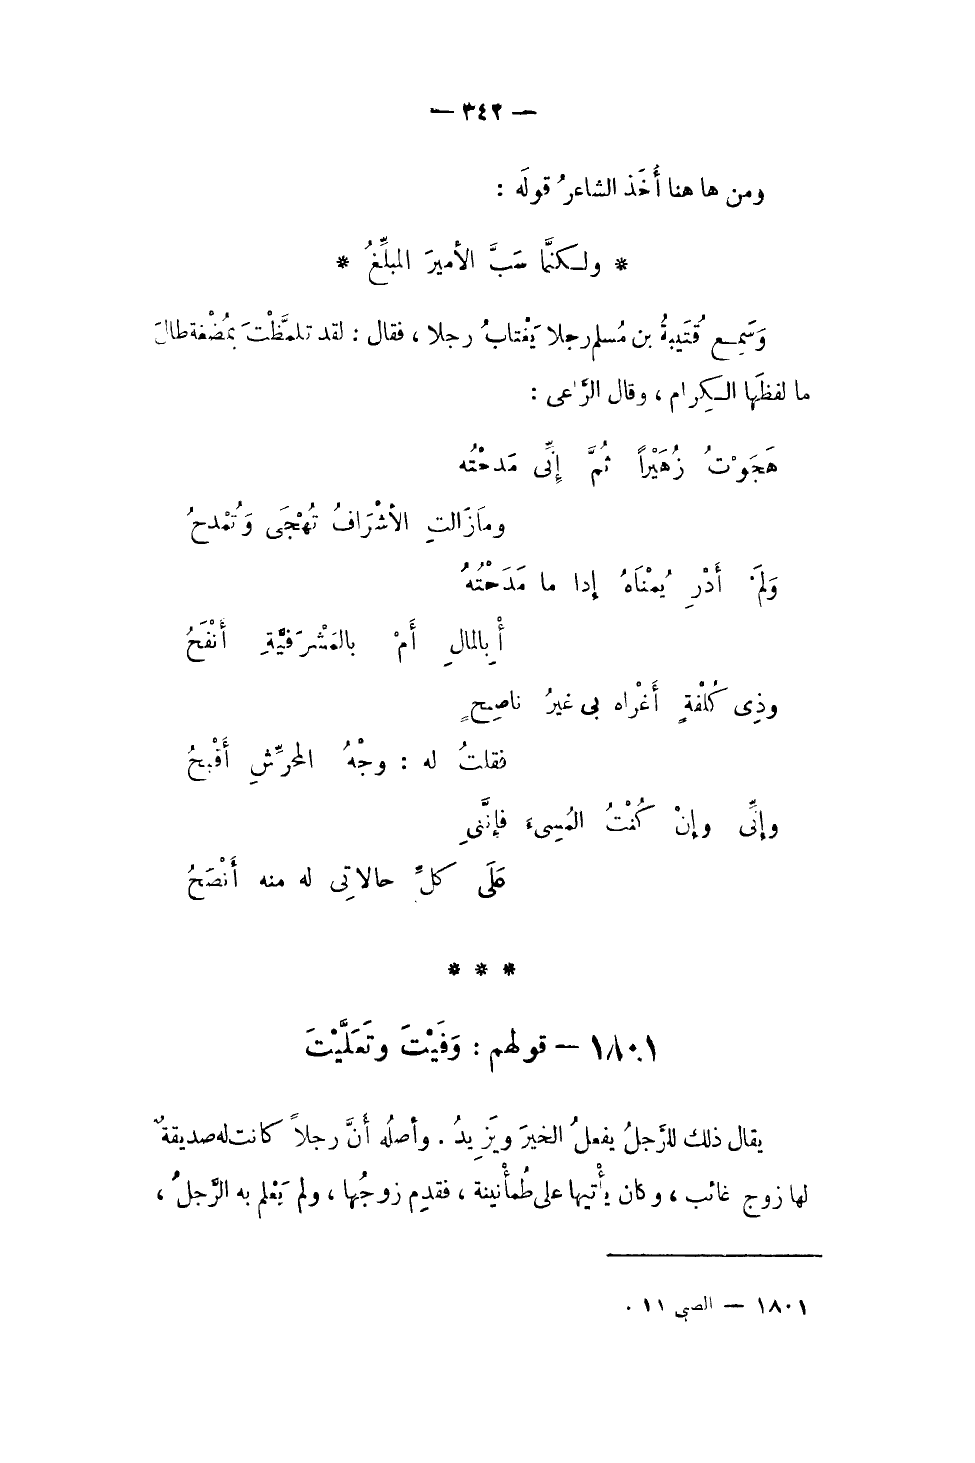 — ٣٤٢ —
ومن ها هنا أَخَذ الشاعرُ قولَه :
* ولكنَّما سَبَّ الأميرَ المبلِّغُ *
وَسَمِع قُتَيبةُ بن مُسلم رجلا يَغْتابُ رجلا ، فقال : لقد تلمَّظْتَ بمُضْغة طالَ
ما لفظَها الكِرام ، وقال الرَّاعى :
هَجَوْتُ زُهَيْراً ثُمَّ إِنِّى مَدحْتُه
ومَازَالتِ الأشْرَافُ تُهْجَى وَتُمْدحُ
وَلَمْ أَدْرِ يُمْنَاهُ إذا ما مَدَحْتُهُ
أَبِالمالِ أَمْ بالمَشْرَفيَّةِ أَنْفَحُ
وذِى كُلْفةٍ أَغْراه بى غيرُ ناصِحٍ
فقلتُ له : وجْهُ المحرِّشِ أَقْبحُ
وإنِّى وإنْ كُنْتُ المُسِىءَ فإنَّنىِ
عَلَى كلِّ حالاتِى له منه أَنْصَحُ
* * *
١٨٠١ — قولهم : وَفَيْتَ وتَعَلَّيْتَ
يقال ذلك للرَّجلُ يفعلُ الخيرَ ويَزِيدُ . وأصلُه أَنَّ رجلاً كانت له صديقةٌ
لها زوج غائب ، وكان يأْتيها على طُمأْنينة ، فقدِم زوجُها ، ولم يَعْلم به الرَّجلُ ،
١٨٠١ — الضبي ١١ .